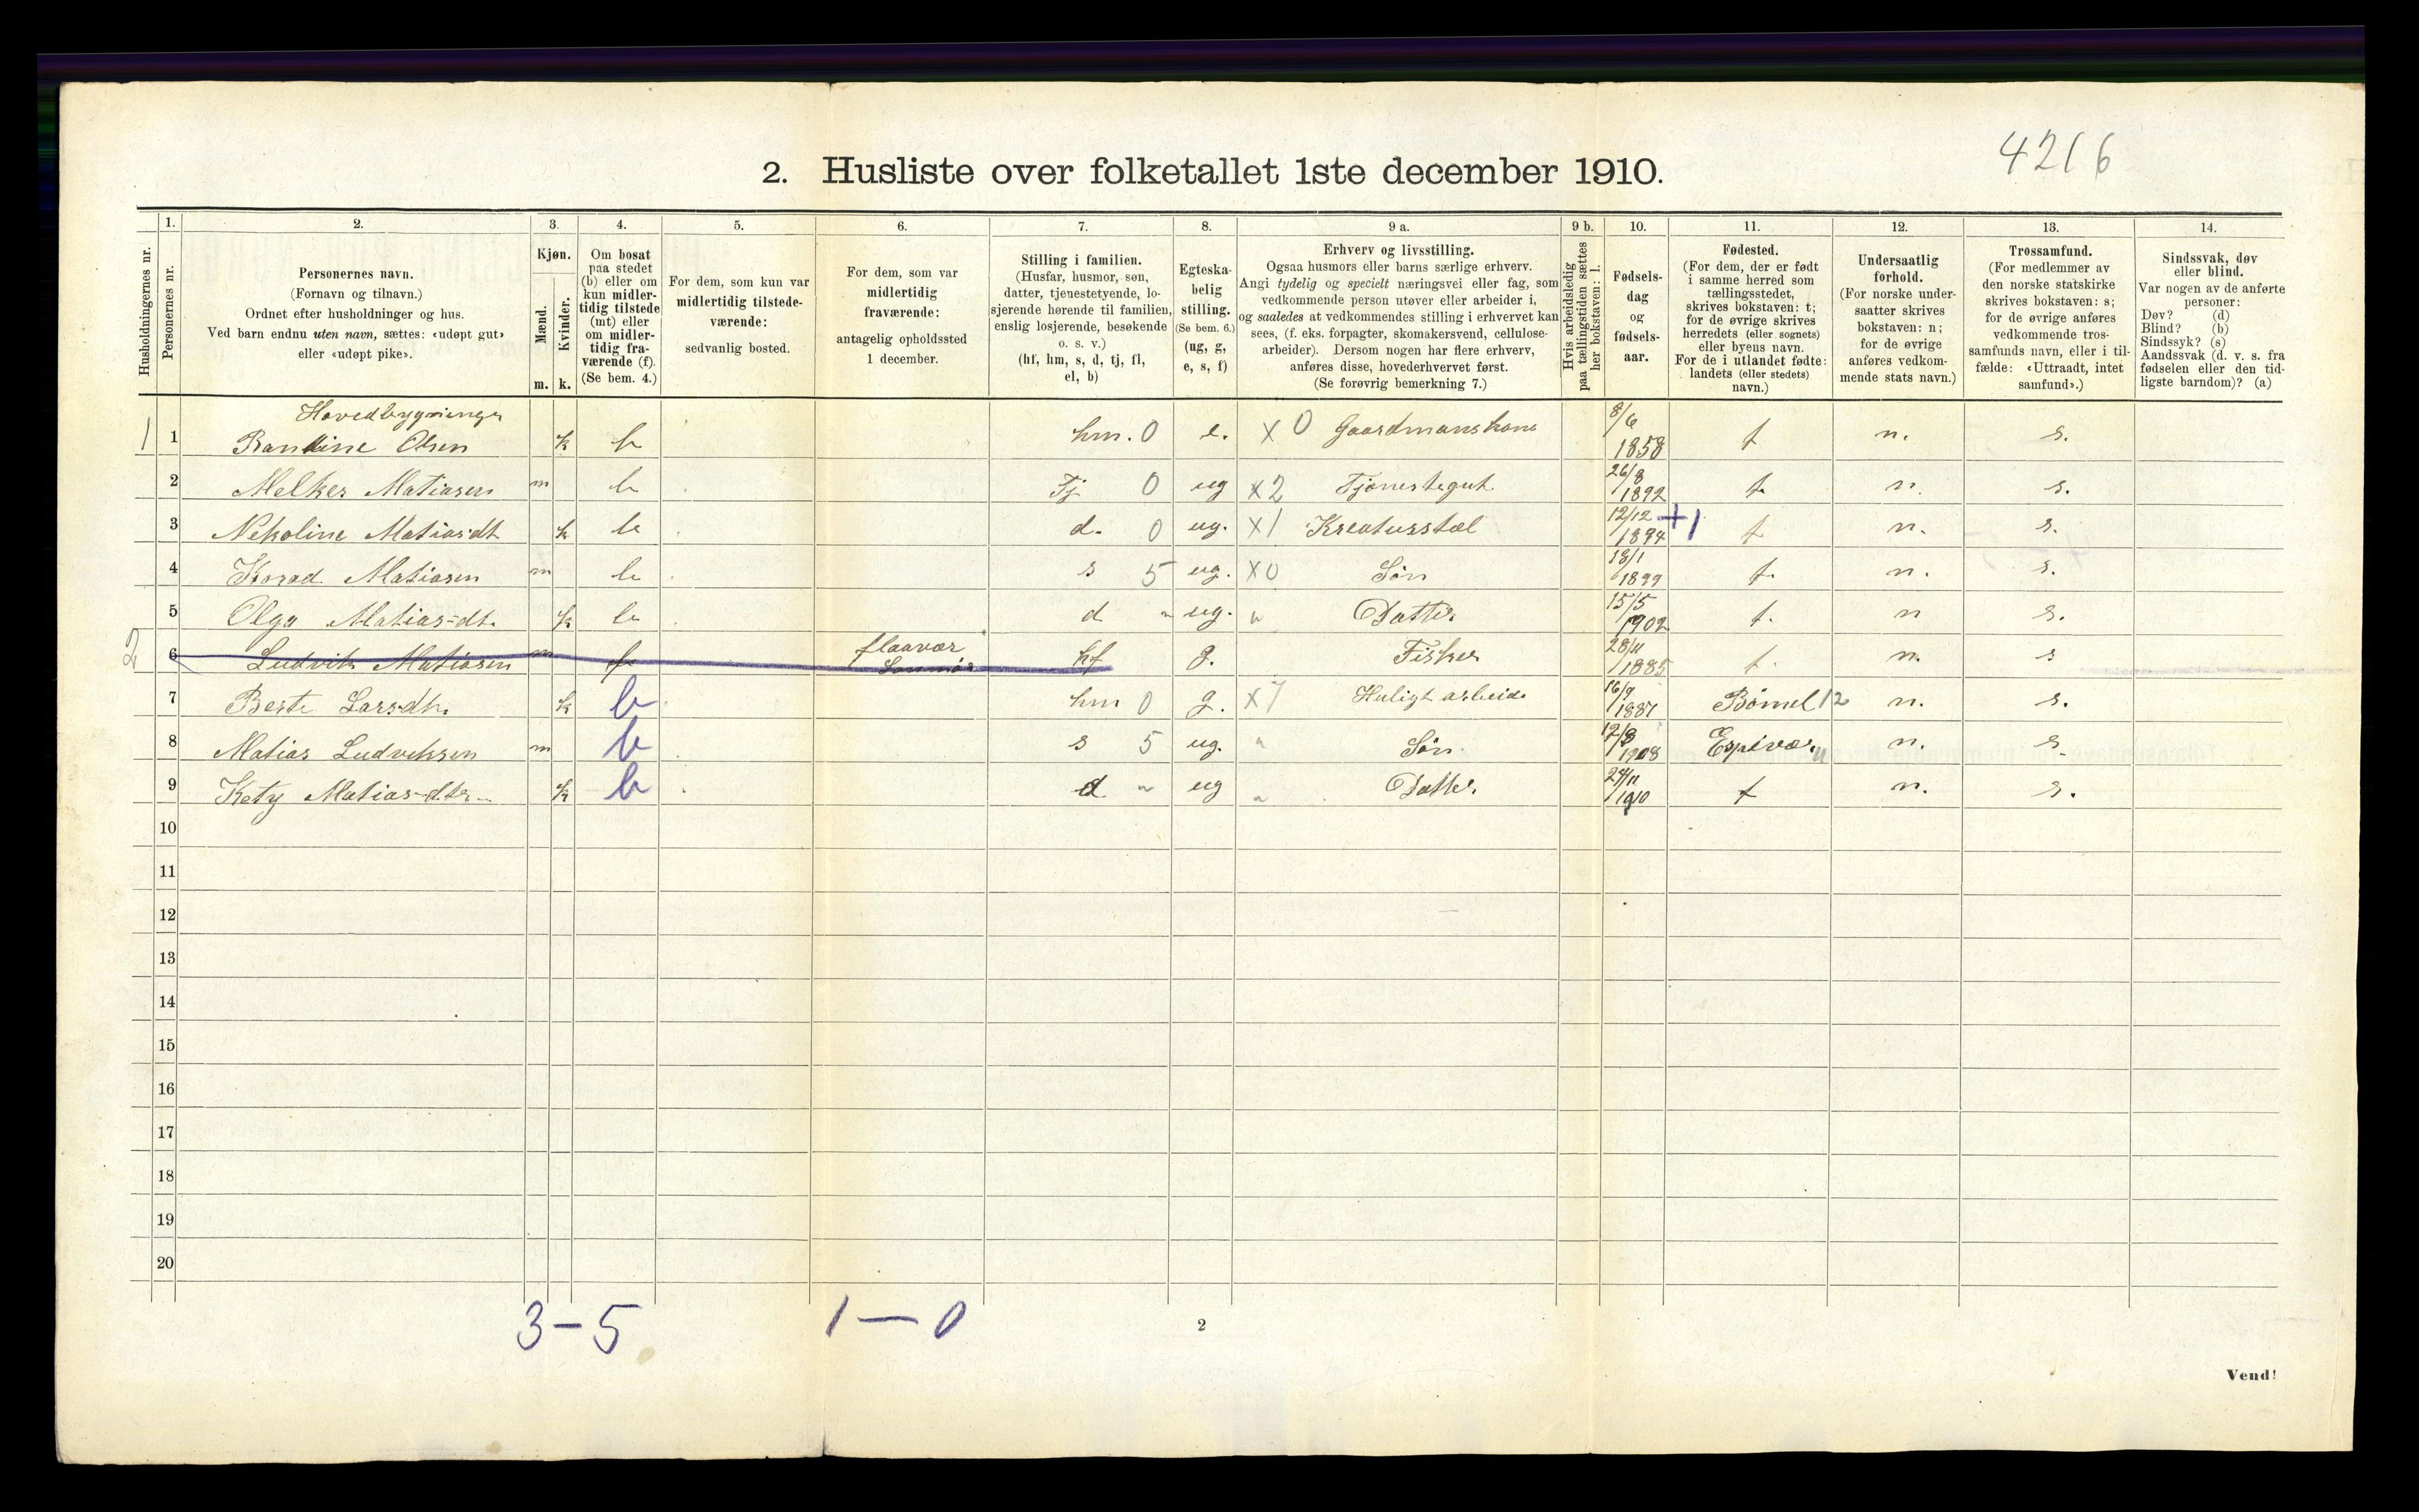 4216
2. Husliste over folketallet 1ste december 1910.
Husholdningernes nr.
1.
Personernes nr.
2.
Personernes navn.
(Fornavn og tilnavn.)
Ordnet efter husholdninger og hus.
Ved barn endnu uten navn, sættes: «udøpt gut»
eller «udøpt pike».
3.
Kjøn.
Mænd.
Kvinder.
m. k.
4.
Om bosat
paa stedet
(b) eller om
kun midler-
tidig tilstede
(mt) eller
om midler-
tidig fra-
værende (f).
(Se bem. 4.)
5.
For dem, som kun var
midlertidig tilstede-
værende:
sedvanlig bosted.
6.
For dem, som var
midlertidig
fraværende:
antagelig opholdssted
1 december.
7.
Stilling i familien.
(Husfar, husmor, søn,
datter, tjenestetyende, lo-
sjerende hørende til familien,
enslig losjerende, besøkende
o. s. v.)
(hf, hm, s, d, tj, fl,
el, b)
8.
Egteska-
belig
stilling.
(Se bem. 6.)
(ug, g,
e, s, f)
9 a.
Erhverv og livsstilling.
Ogsaa husmors eller barns særlige erhverv.
Angi tydelig og specielt næringsvei eller fag, som
vedkommende person utøver eller arbeider i,
og saaledes at vedkommendes stilling i erhvervet kan
sees, (f. eks. forpagter, skomakersvend, cellulose-
arbeider). Dersom nogen har flere erhverv,
anføres disse, hovederhvervet først.
(Se forøvrig bemerkning 7.)
9 b.
Hvis arbeidsledig
paa tællingstiden sættes
her bokstaven: l.
10.
Fødsels-
dag
og
fødsels-
aar.
11.
Fødested.
(For dem, der er født
i samme herred som
tællingsstedet,
skrives bokstaven: t;
for de øvrige skrives
herredets (eller sognets)
eller byens navn.
For de i utlandet fødte:
landets (eller stedets)
navn.)
12.
Undersaatlig
forhold.
(For norske under-
saatter skrives
bokstaven: n;
for de øvrige
anføres vedkom-
mende stats navn.)
13.
Trossamfund.
(For medlemmer av
den norske statskirke
skrives bokstaven: s;
for de øvrige anføres
vedkommende tros-
samfunds navn, eller i til-
fælde: «Uttraadt, intet
samfund».)
14.
Sindssvak, døv
eller blind.
Var nogen av de anførte
personer:
Døv? (d)
Blind? (b)
Sindssyk? (s)
Aandssvak (d. v. s. fra
fødselen eller den tid-
ligste barndom)? (a)
1 1 Olsen k b hm. 0 e. x 0 Gaardmanskone 8/6 1858 t n. s.
2 Melker Matiasen m b Tj 0 ug x2 Tjenestegut 26/8 1892 t. n. s.
3 Nekoline Matiasdt k b d. 0 ug. x1 Kreaturstel 12/12 1894 +1 t n. s.
4 Konrad Matiasen m b s 5 ug. x0 Søn 18/1 1899 t. n. s.
5 Olga Matias-dt. k b d " ug. " Datter 15/5 1902 t. n s.
2 6 Ludvik Matiasen m f flaavær hf g. Fisker 28/11 1885 t. n. s
7 Berte Larsdtr. k b hm 0 g. x7 Huligt arbeide 16/9 1887 Bømel 12 n. s.
8 Matias Ludviksen m b s 5 ug. " Søn 12/8 1908 Espevær " n. s
9 Kety Matias-dtr. k b d " ug " Datter 24/11 1910 t n. s.
10
11
12
13
14
15
16
17
18
19
20
3-5 1-0
2
Vend!